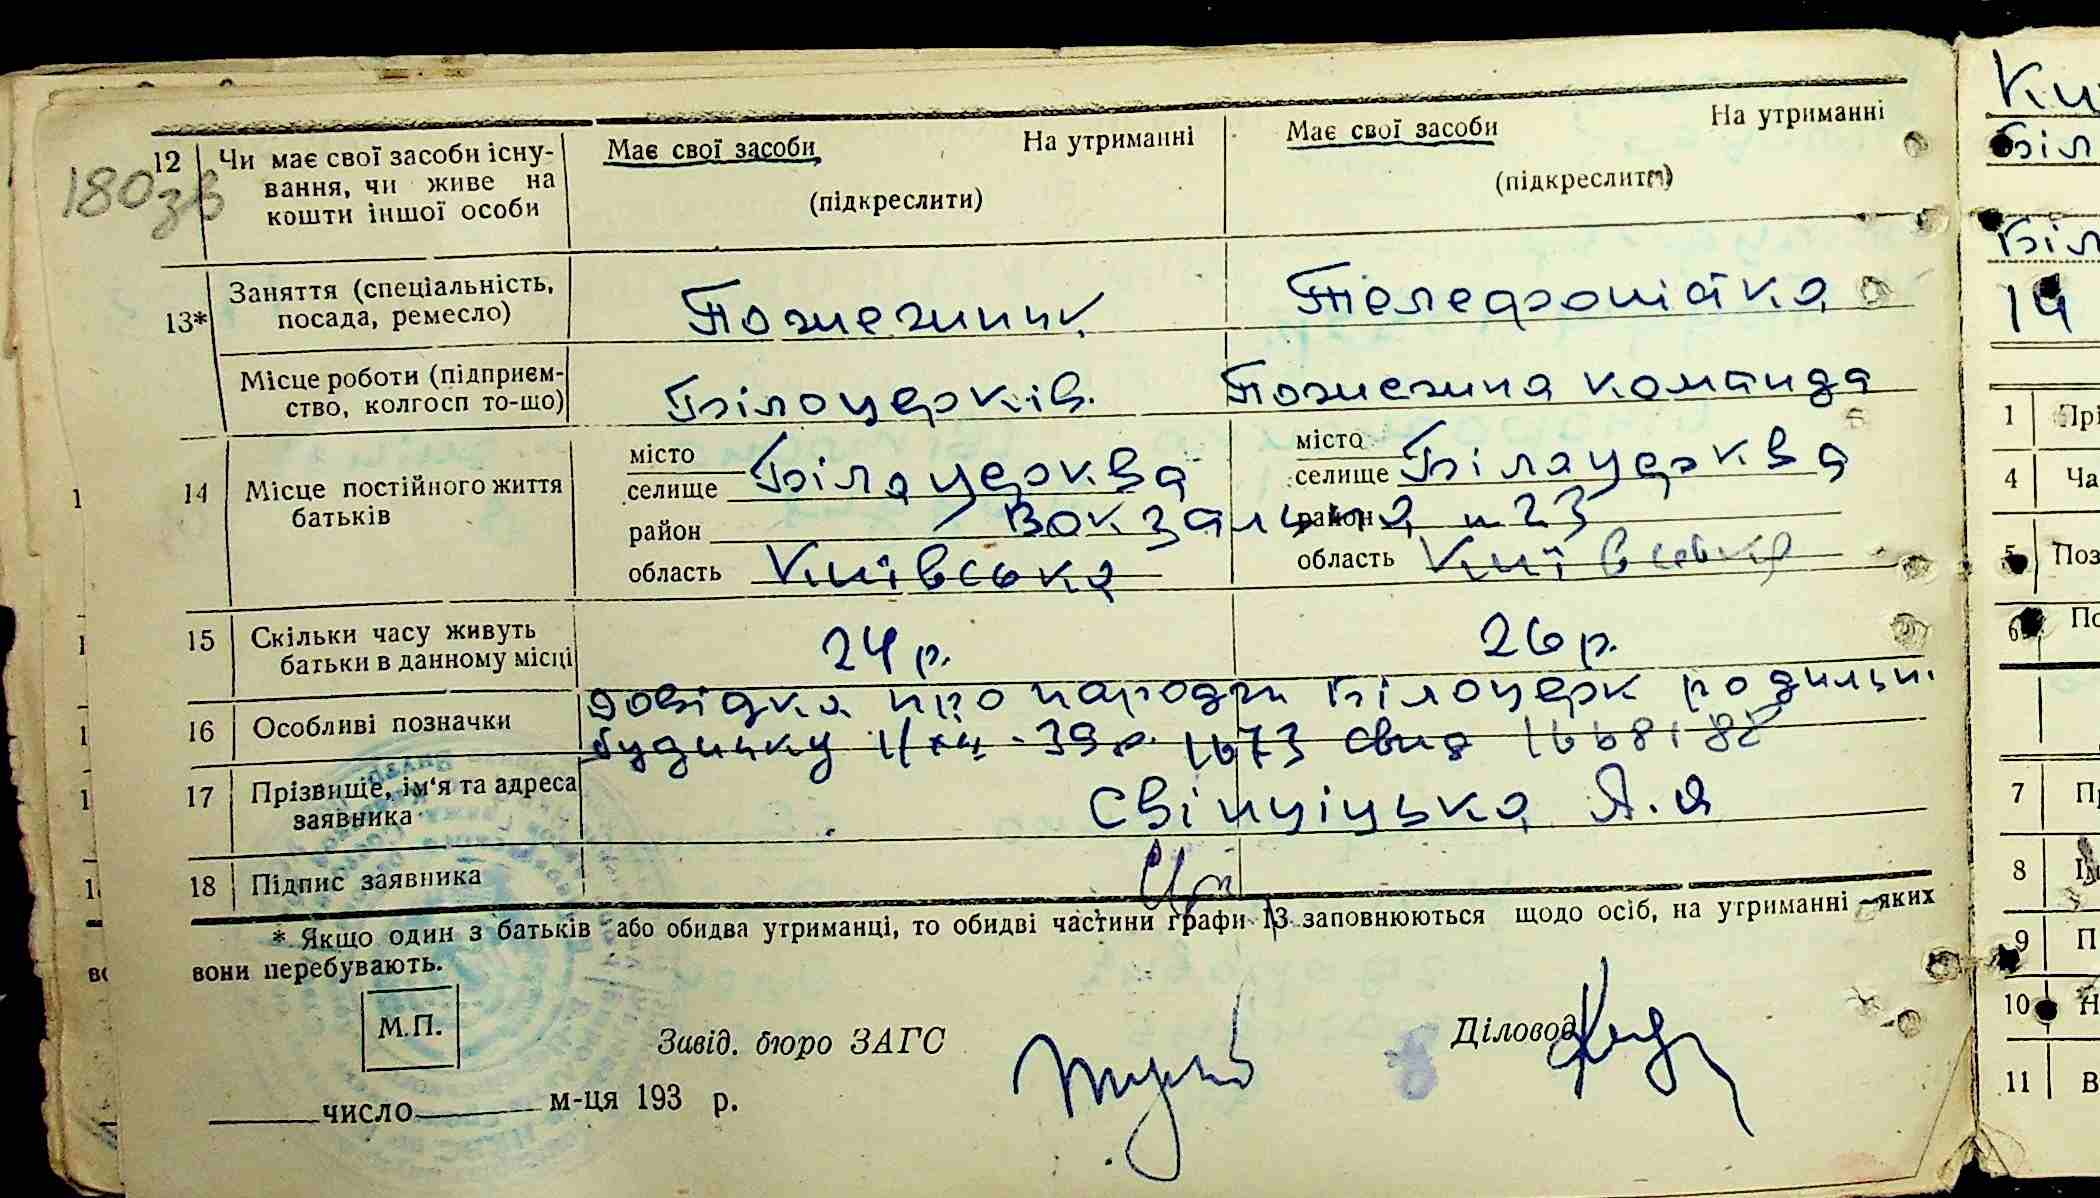 180зв
12 Чи має свої засоби існу-
вання, чи живе на
кошти іншої особи
Має свої засоби На утриманні
(підкреслити)
Має свої засоби На утриманні
(підкреслити)
13* Заняття (спеціальність,
посада, ремесло)
Пожежник
Телефоністка
Місце роботи (підприєм-
ство, колгосп то-що)
Білоцерків. Пожежна команда
14 Місце постійного життя
батьків
місто
селище Білацерква
район Вокзальна н 23
область Київська
місто
селище Білацерква
район
область Київська
15 Скільки часу живуть
батьки в данному місці
24 р.
26 р.
16 Особливі позначки
довідка про народж Білоцерк родильн.
будинку 39 р. 1673 свид
17 Прізвище, ім'я та адреса
заявника
Свінціцька Я. Я
18 Підпис заявника
* Якщо один з батьків або обидва утриманці, то обидві частини графи 13 заповнюються щодо осіб, на утриманні яких
вони перебувають.
М.П.
Завід. бюро ЗАГС
Діловод
число м-ця 193 р.
Біл
Біл
14
1 Прі
4 Ча
5 Поз
6 По
7 Пр
8 Ім
9 П
10 Н
11 В